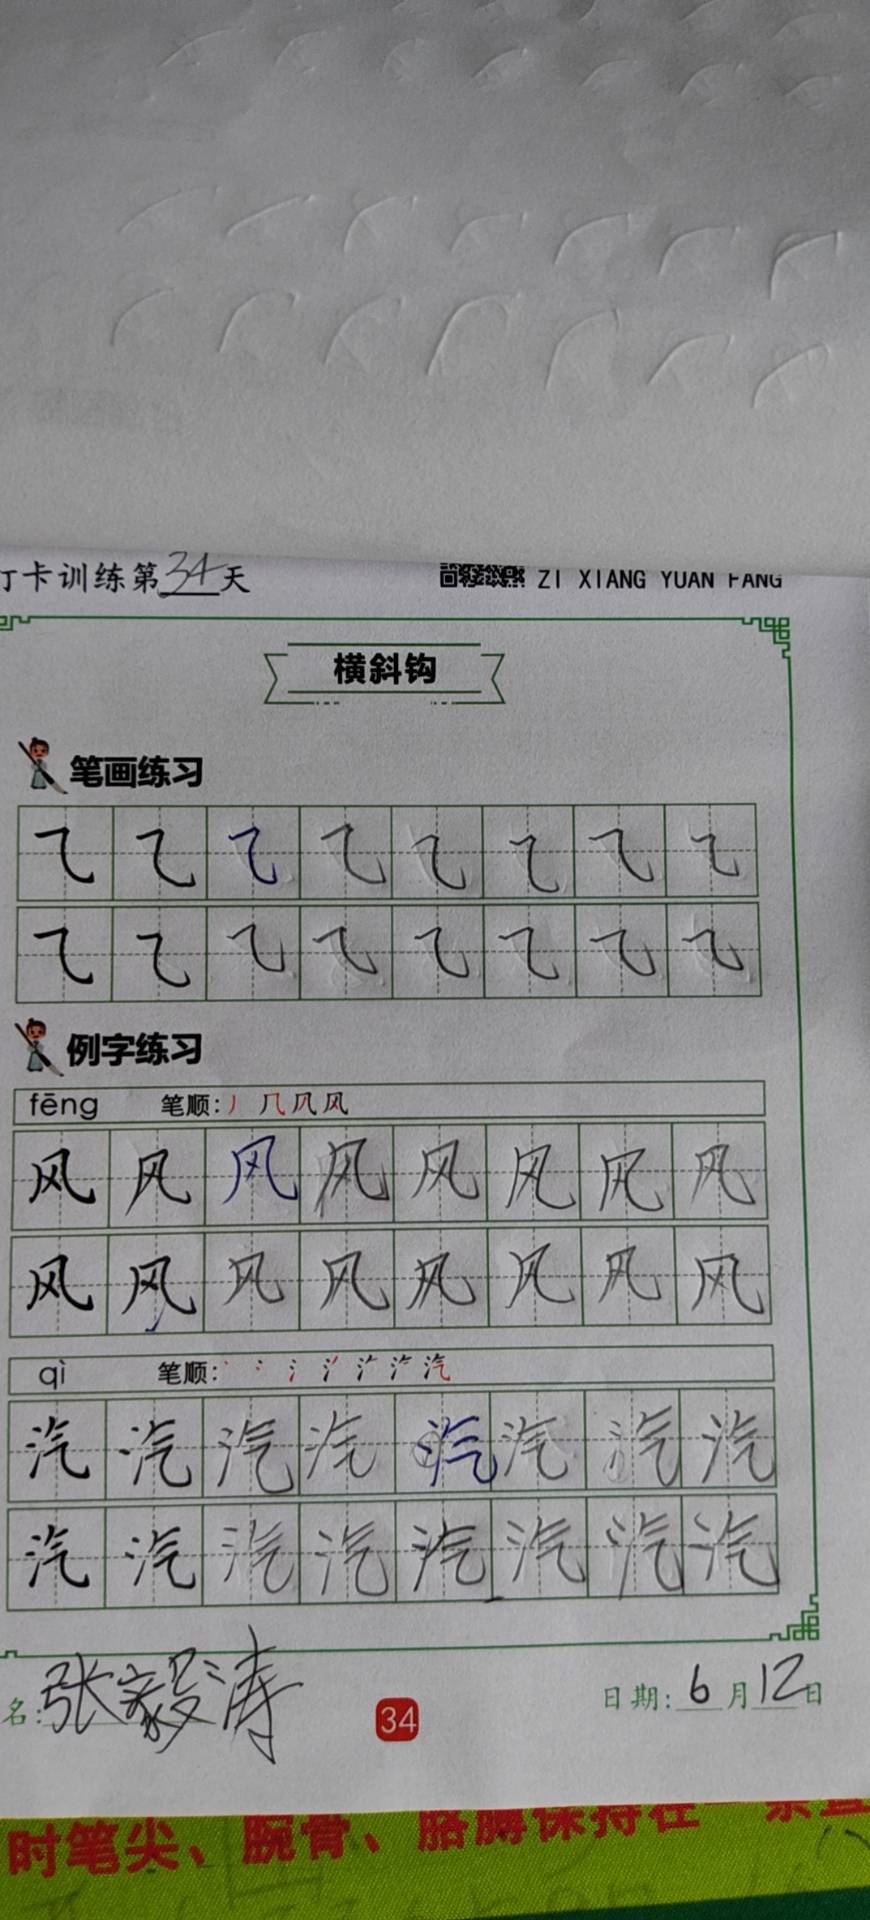 打卡训练第34天
ZI XIANG YUAN FANG
横斜钩
笔画练习
⺄ ⺄ ⺄ ⺄ ⺄ ⺄ ⺄ ⺄
⺄ ⺄ ⺄ ⺄ ⺄ ⺄ ⺄ ⺄
例字练习
fēng 笔顺: 丿 几 凤 风
风 风 风 风 风 风 风 风
风 风 风 风 风 风 风 风
qì 笔顺: 汽
汽 汽 汽 汽 汽 汽 汽 汽
汽 汽 汽 汽 汽 汽 汽 汽
名: 张毅涛
34
日期: 6月12日
时笔尖、腕骨、胳膊保持在一条直